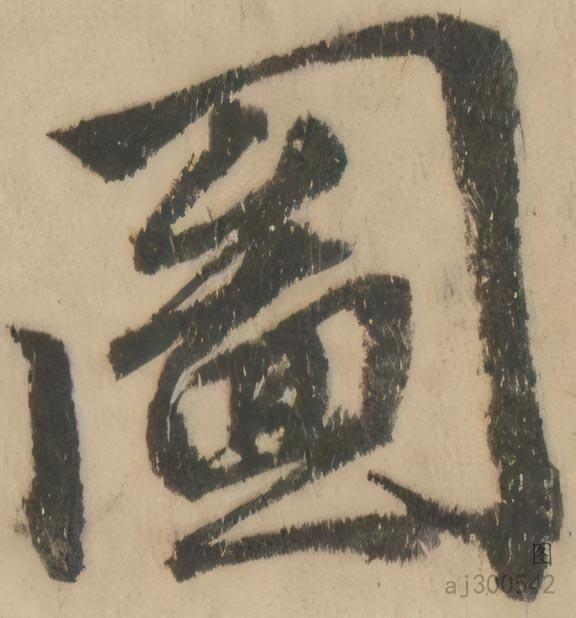 圖
图
aj300542